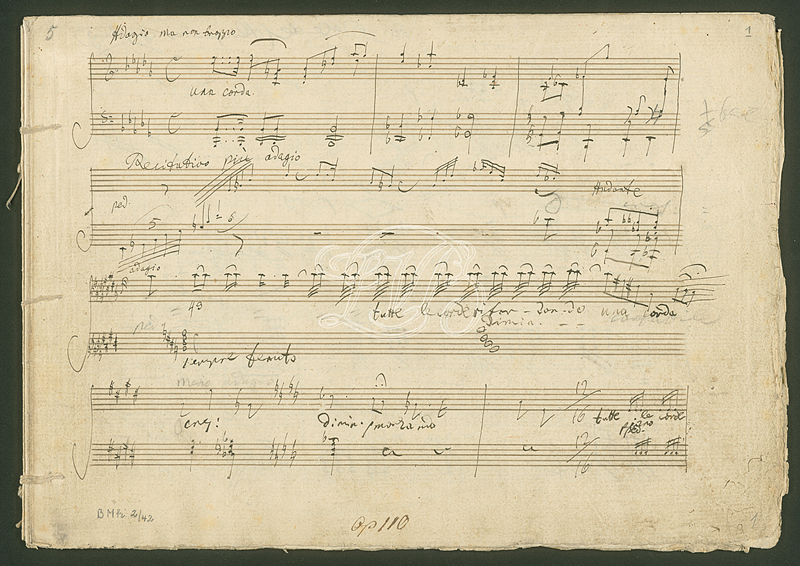 5
1
Adagio ma non troppo
una corda.
Recitativo più adagio
ped.
Andante
5
6
adagio
tutte le corde
una corda
dimin.
sempre tenuto
cresc:
dimin. smorzando
12
16
tutte le corde
ped.
12
16
BMh 2/42
Op 110